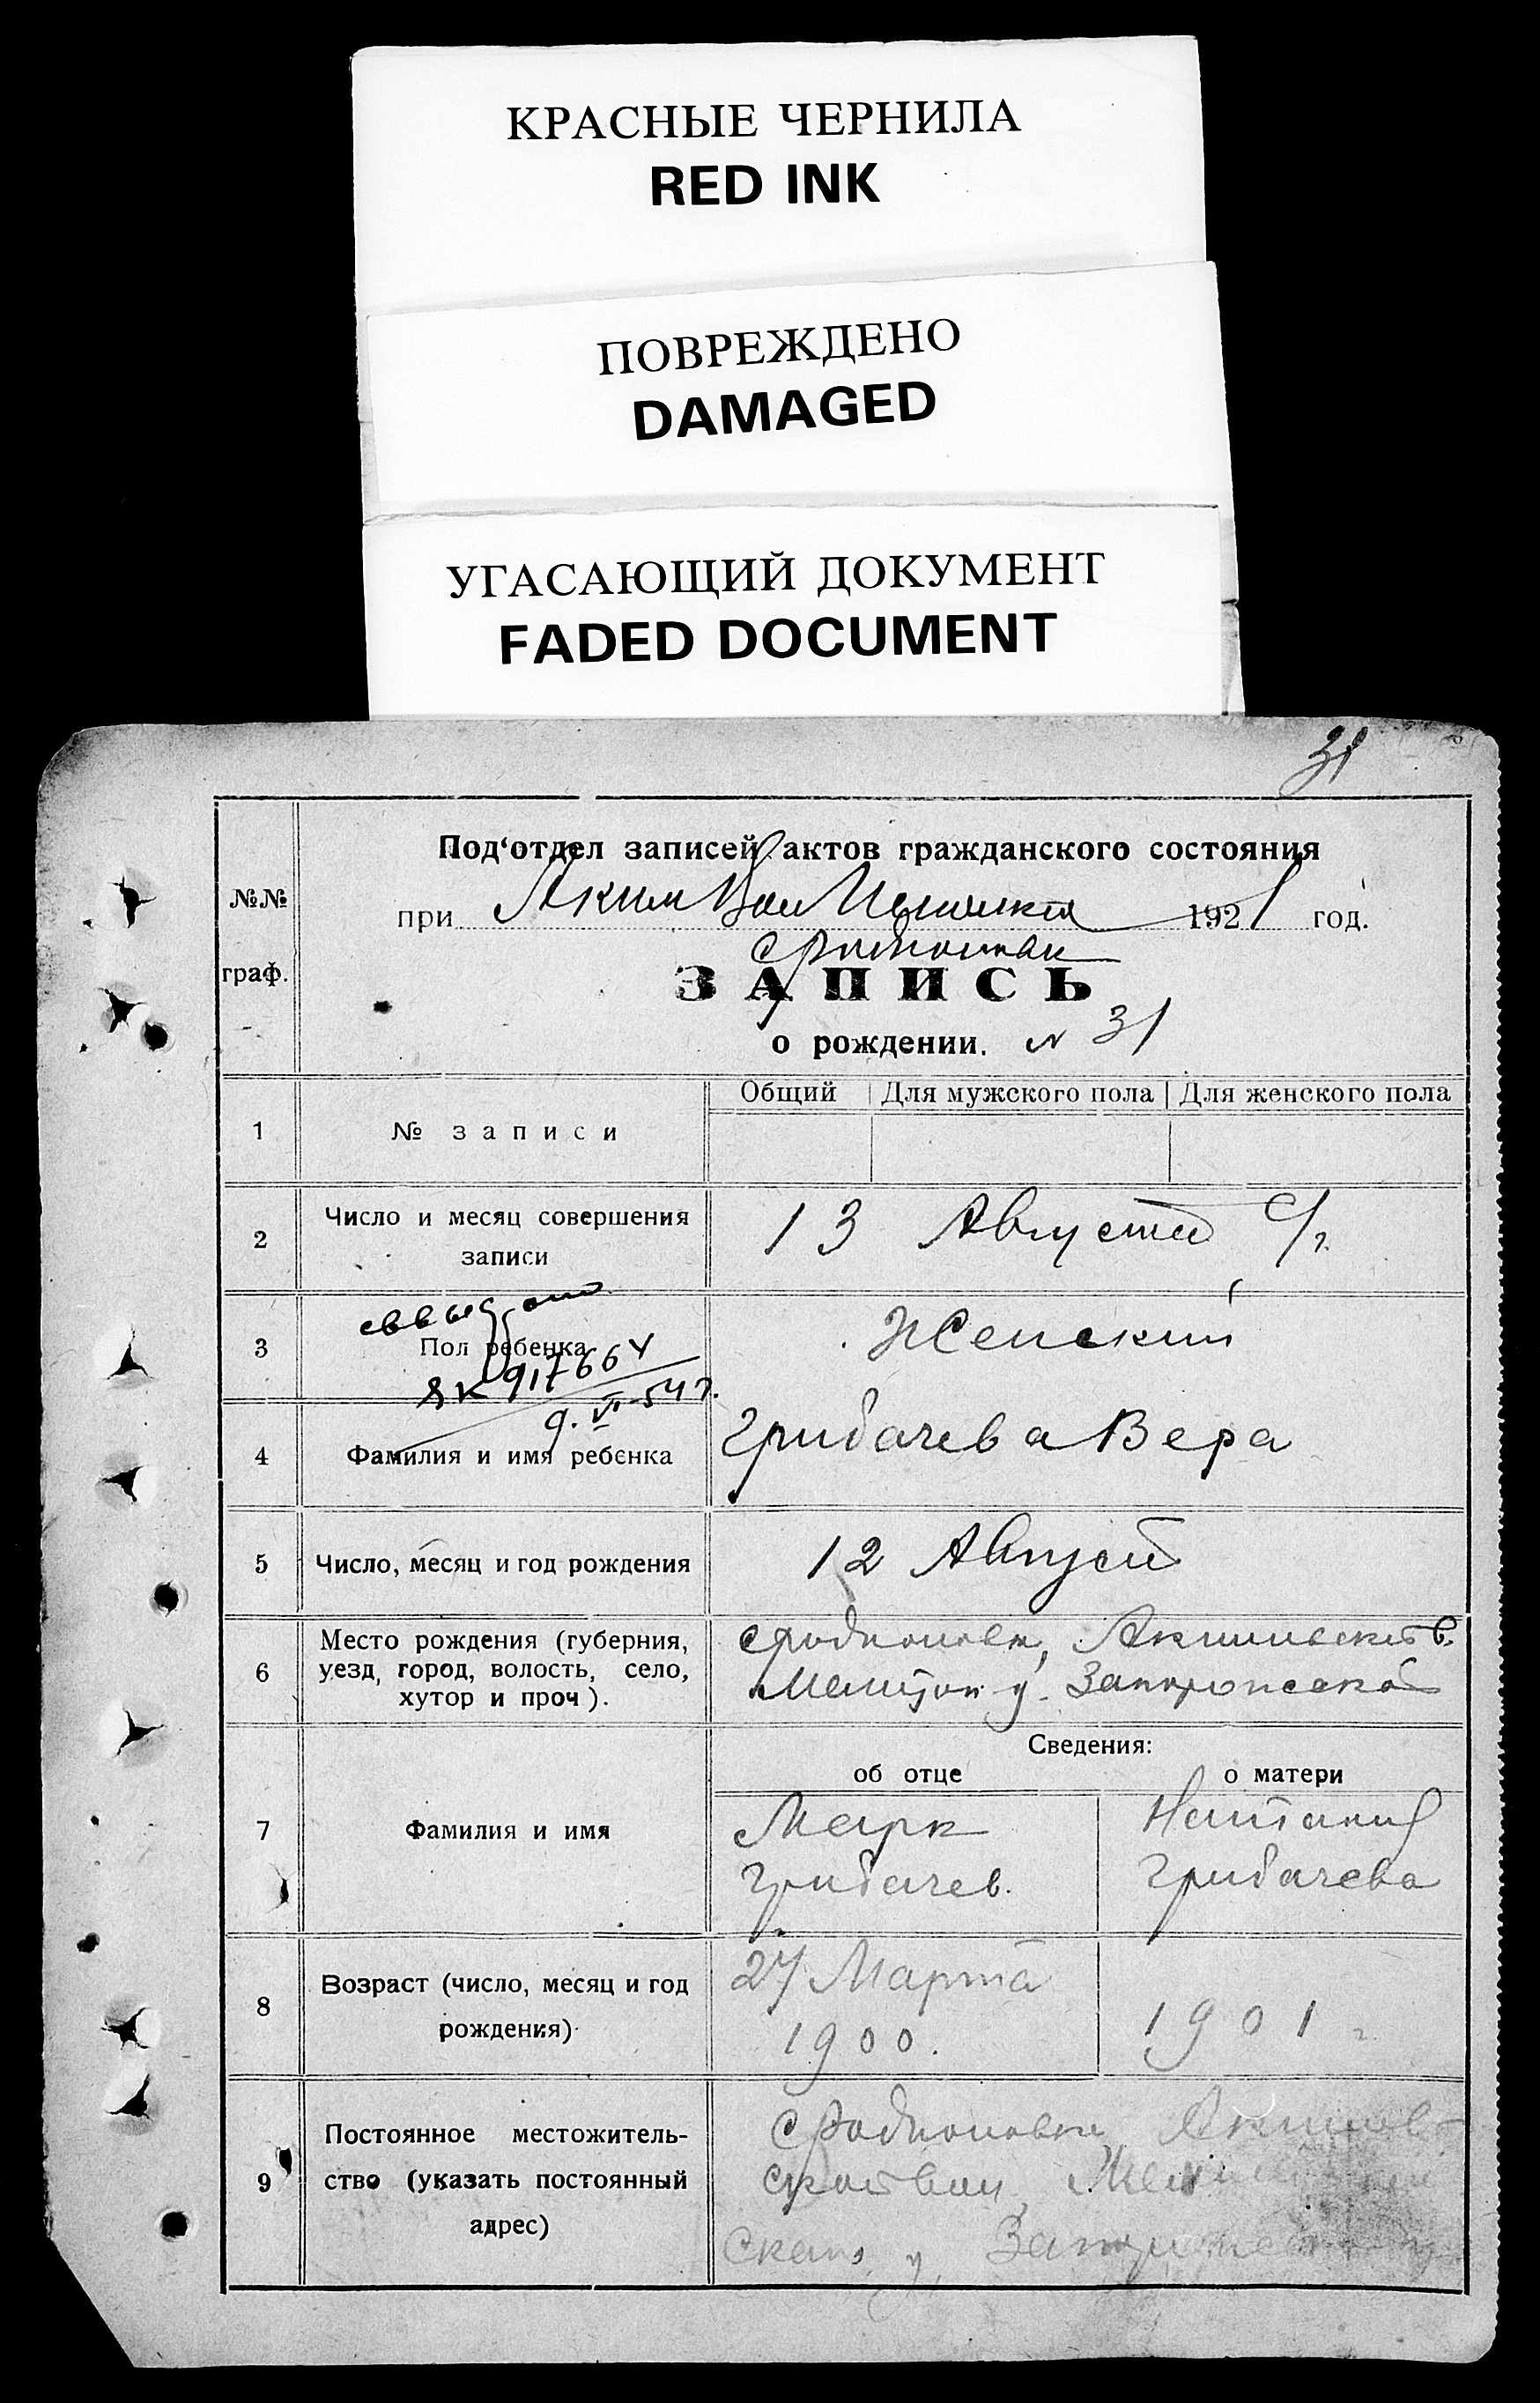 КРАСНЫЕ ЧЕРНИЛА
RED INK
ПОВРЕЖДЕНО
DAMAGED
УГАСАЮЩИЙ ДОКУМЕНТ
FADED DOCUMENT
31
Под‘отдел записей актов гражданского состояния
№№
граф.
при Аким Вол 1921 год.
ЗАПИСЬ
о рождении. N 31
Общий Для мужского пола Для женского пола
1 № записи
2 Число и месяц совершения
записи
13 Августа с/г.
3 Пол ребенка
Женский
917664
9. VI-54 г.
4 Фамилия и имя ребенка
Грибачева Вера
5 Число, месяц и год рождения
12 Август
6 Место рождения (губерния,
уезд, город, волость, село,
хутор и проч).
с Родионовка, Акимовской в.
Мелитоп у. Запорожской
Сведения:
об отце о матери
7 Фамилия и имя
Марк
Грибачев.
Наталия
Грибачева
8 Возраст (число, месяц и год
рождения)
27 Марта
1900.
1901 г.
9 Постоянное местожитель-
ство (указать постоянный
адрес)
с Родионовка Акимов-
ской вол,
у.